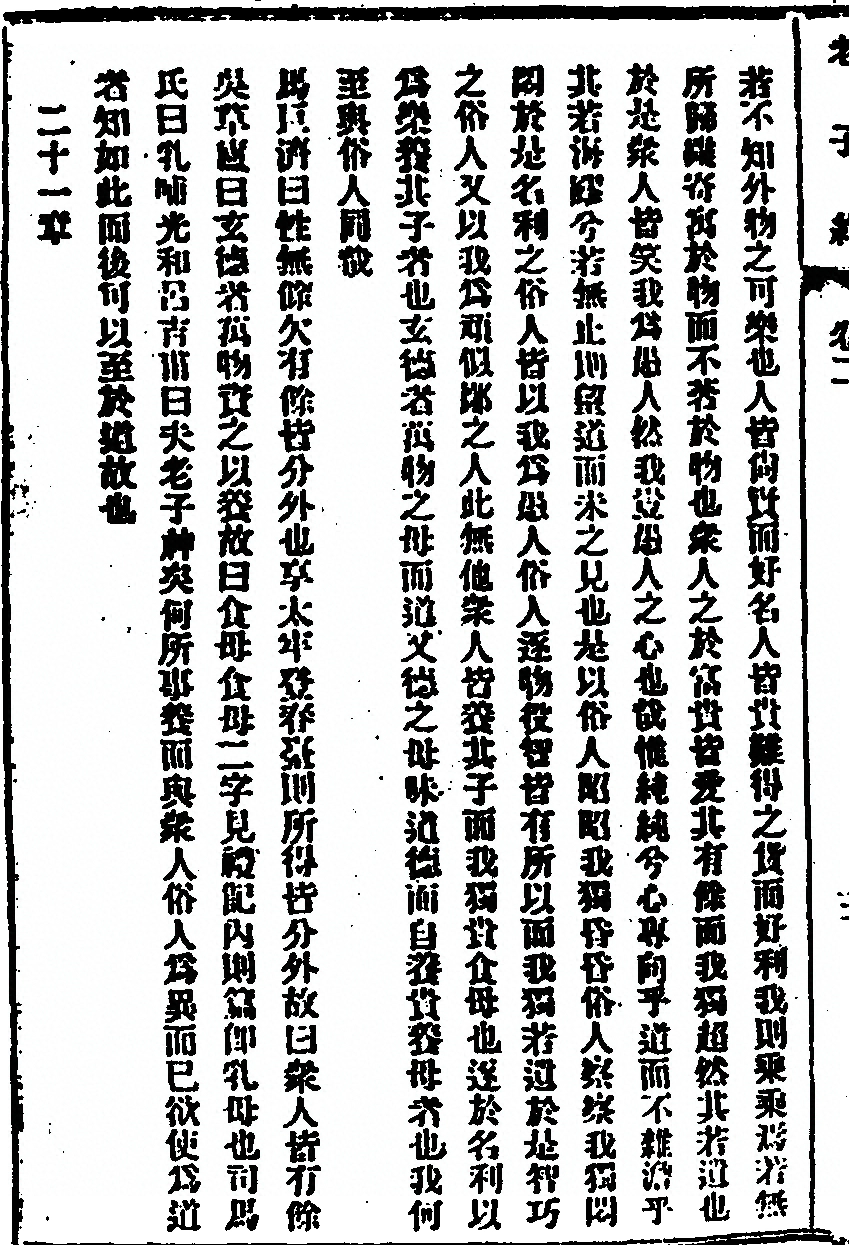 老子經 卷二
若不知外物之可樂也人皆尙貴而好名人皆貴難得之貨而好利我則乘乘焉若無
所歸雖寄寓於物而不著於物也衆人之於富貴皆愛其有餘而我獨超然其若遺也
於是衆人皆笑我爲愚人然我豈愚人之心也哉惟純純兮心專向乎道而不雜滑乎
其若海漂兮若無止則望道而未之見也是以俗人昭昭我獨昏昏俗人察察我獨悶
悶於是名利之俗人皆以我爲愚人俗人逐物役智皆有所以而我獨若遺於是智巧
之俗人又以我爲頑似鄙之人此無他衆人皆養其子而我獨貴食母也逐於名利以
爲樂養其子者也玄德者萬物之母而道又德之母味道德而自養貴養母者也我何
至與俗人同哉
馬巨濟曰性無餘欠有餘皆分外也享太牢登春臺則所得皆分外故曰衆人皆有餘
吳草廬曰玄德者萬物資之以養故曰食母食母二字見禮記內則篇卽乳母也司馬
氏曰乳哺光和呂吉甫曰夫老子神矣何所事養而與衆人俗人爲異而已欲使爲道
者知如此而後可以至於道故也
二十一章